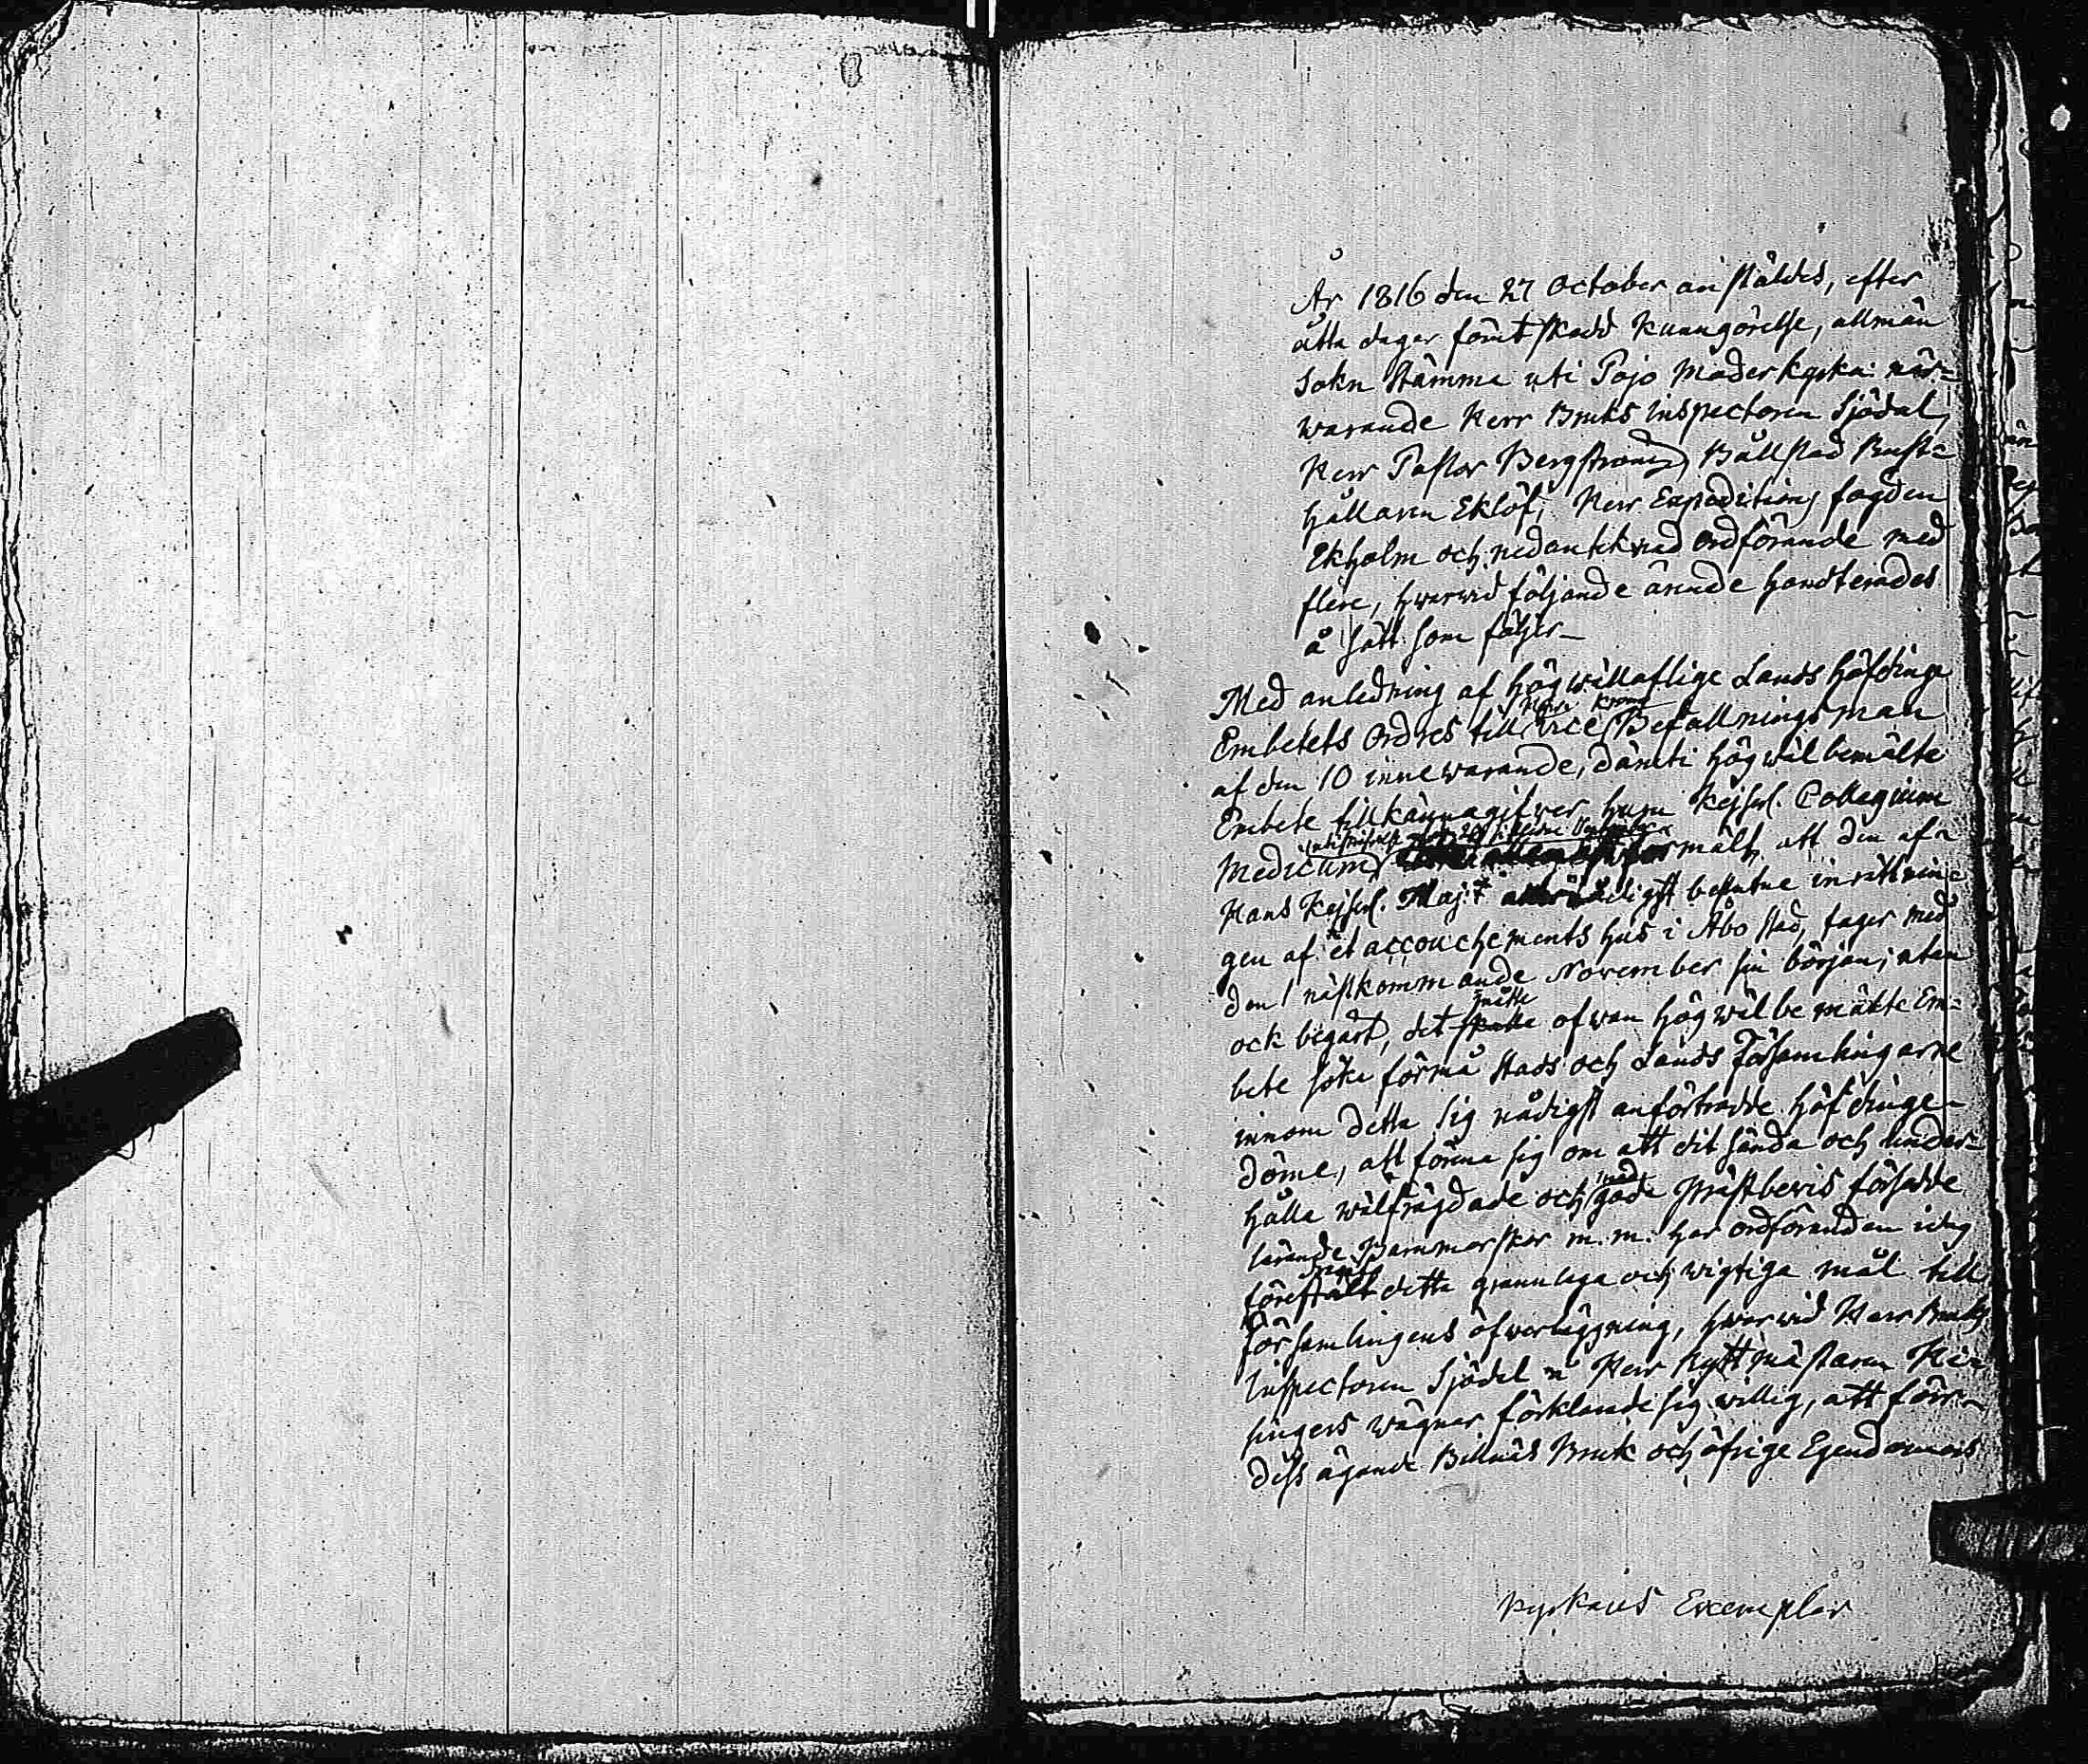 År 1816 den 27 October anstäldes, efter
åtta dagar förut skedd kunngörelse, allmän
Sokn Stämma uti Pojo Moderkyrka: när=
warande Herr Bruks Inspectoren Sjödal,
Herr Pastor Bergström, Bållstad Rust=
hållaren Eklöf, Herr Expeditions fogden
Ekholm och nedanteknad Ordförande med
flere, hwarwid följande ärende handterades
å sätt som följer_
Med anledning af Högwällaflige Lands höfdinge
Herr Krono
Embetets Ordres till Vice Befallningsman
af den 10 innewarande, däruti högwälbemälte
Embete tillkännagifver, huru Kejserl. Collegium
Medicum mält, att den af
Hans Kejserl. Maj:t nådigst beslutne inrättnin=
gen af et accouchements hus i Åbo stad, tager med
den 1 nästkommande November sin början; utan
måtte
ock begärt, det skulle ofwan högwälbemälte Em=
bete söka förmå Stads och Lands Församlingarne
innom detta sig nådigst anförtrodde höfdinge=
döme, att förena sig om att dit sända och under=
med
hålla wälfrägdade och gode Prästbevis försedde
lärande Barnmorskor m.m. har ordföranden idag
föreställt detta grannlaga och wigtiga mål till
Församlingens öfwerläggning, hwarwid Herr Bruks
Inspectoren Sjödal å Herr Ryttmästaren Hi=
singers wägnar förklarade sig willig, att för
dess ägande Billnäs Bruk och öfrige Egendomars
Kyrkans Exemplar